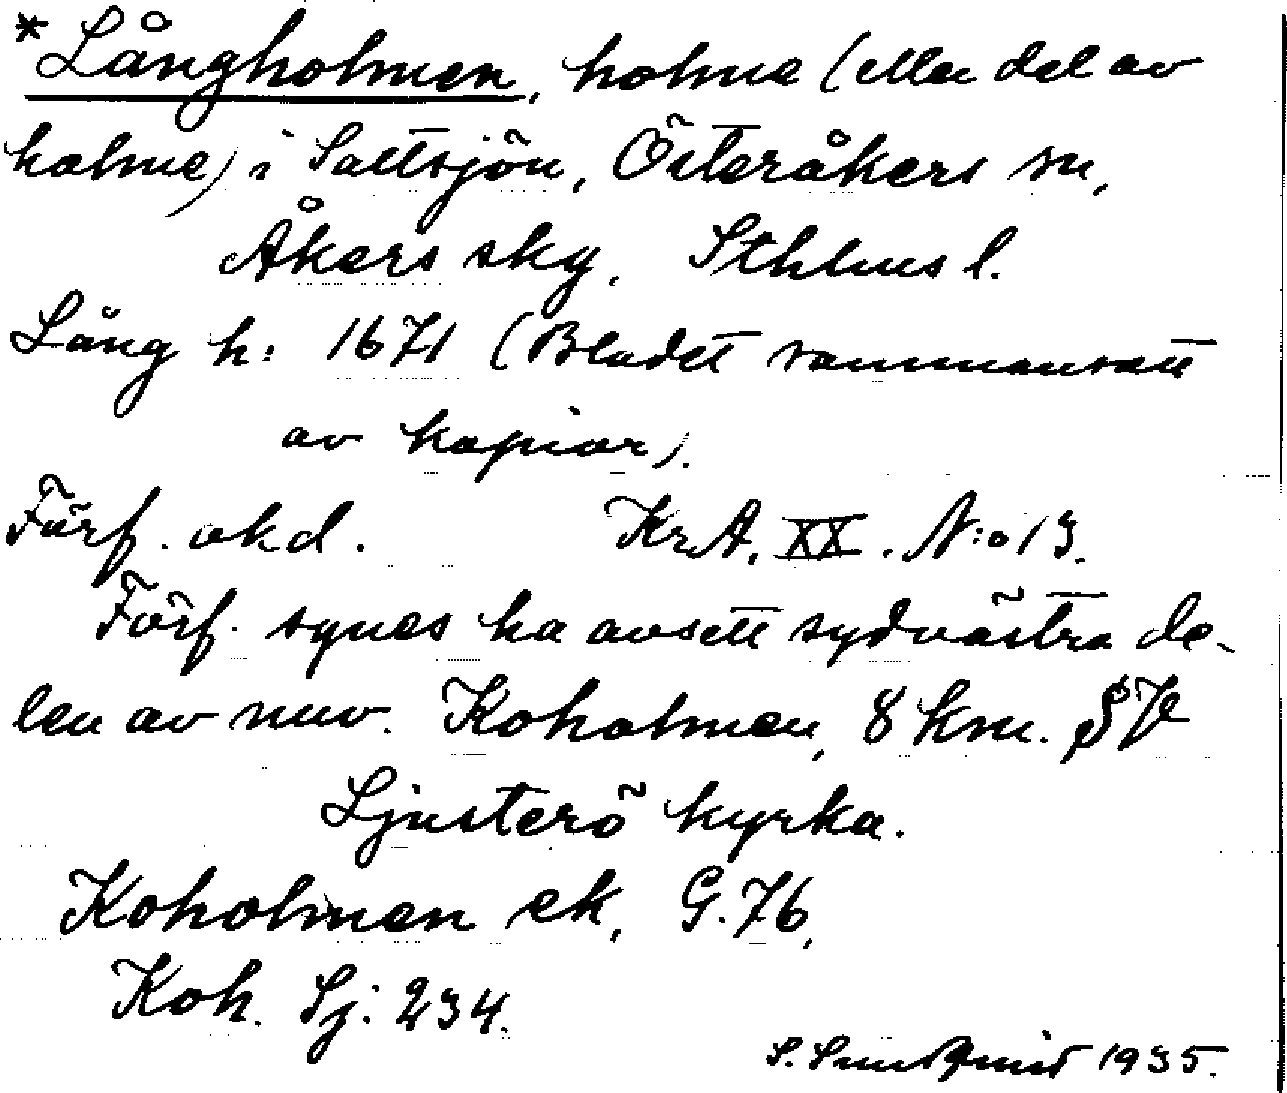 *Långholmen, holme (eller del av
holme) i Saltsjön, Österåkers sn,
Åkers skg, Sthlms l.
Lång h: 1671 (Bladet sammansatt
av kopior).
Förf. okd. Kr.A. XX. N:o 13.
Förf. synes ha avsett sydvästra de-
len av nuv. Koholmen, 8 km. SV
Ljusterö kyrka.
Koholmen ek, G. 76,
Koh. Sj: 234.
S. Sundqvist 1935.